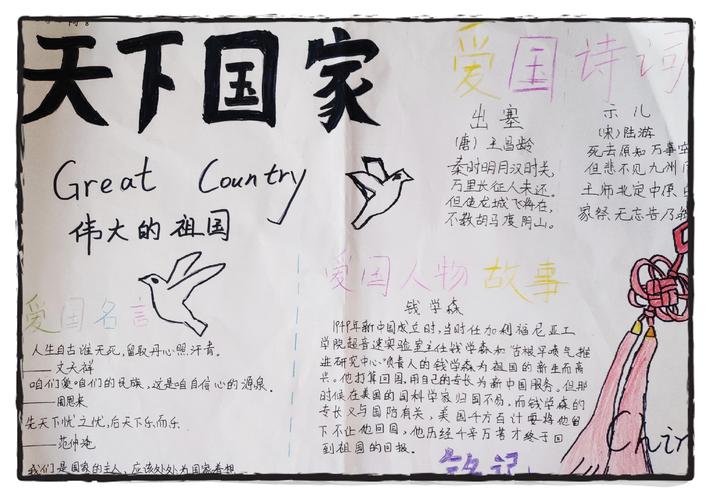 天下国家
Great Country
伟大的祖国
爱国名言
人生自古谁无死,留取丹心照汗青。
——文天祥
咱们爱咱们的民族,这是咱自信心的源泉。
——周恩来
先天下忧之忧,后天下乐而乐
——范仲淹
我们是国家的主人,应该处处为国家着想
爱国诗词
出塞
(唐)王昌龄
秦时明月汉时关,
万里长征人未还。
但使龙城飞将在,
不教胡马度阴山。
示儿
(宋)陆游
死去原知万事空
但悲不见九州
王师北定中原日
家祭无忘告乃翁
爱国人物故事
钱学森
1949年新中国成立时,当时任加利福尼亚工
学院超音速实验室主任钱学森和“古根罕喷气推
进研究中心”负责人的钱学森为祖国的新生而高
兴。他打算回国,用自己的专长为新中国服务。但那
时候在美国的国科学家归国不易,而钱学森的
专长又与国防有关,美国千方百计要将他留
下不让他回国,他历经千辛万苦才终于回
到祖国的回报。
铭记
Chin